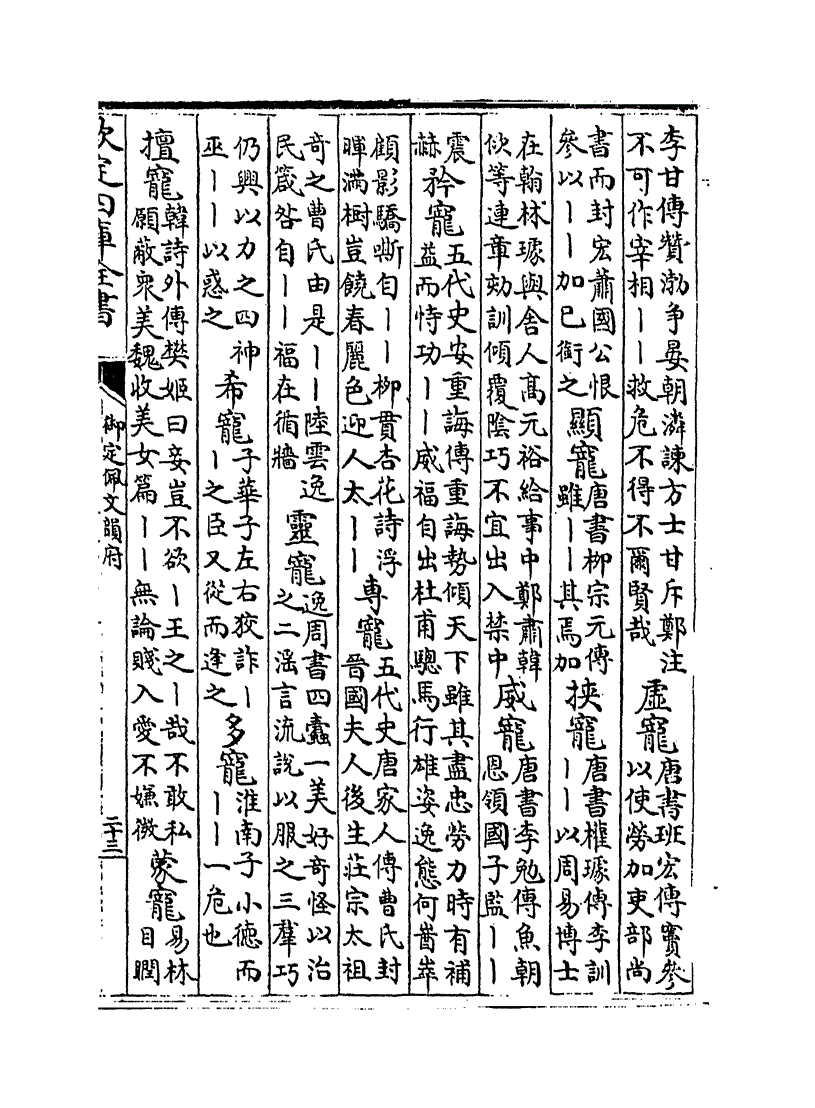 李甘傳賛渤争晏朝潾諫方士甘斥鄭注
不可作宰相丨丨救危不得不爾賢哉
虛寵
唐書班宏傳竇參
以使勞加吏部尚
書而封宏蕭國公恨
參以丨丨加已銜之
顯寵
唐書柳宗元傳
雖丨丨其焉加
挾寵
唐書權璩傳李訓
丨丨以周易博士
在翰林璩與舍人髙元裕給事中鄭肅韓
佽等連章劾訓傾覆陰巧不宜出入禁中
威寵
唐書李勉傳魚朝
恩領國子監丨丨
震
赫
矜寵
五代史安重誨傳重誨勢傾天下雖其盡忠勞力時有補
益而恃功丨丨威福自出杜甫驄馬行雄姿逸態何崷崒
顧影驕嘶自丨丨柳貫杏花詩浮
暉滿樹豈饒春麗色迎人太丨丨
専寵
五代史唐家人傳曹氏封
晉國夫人後生莊宗太祖
奇之曹氏由是丨丨陸雲逸
民箴咎自丨丨福在循牆
靈寵
逸周書四蠹一美好奇怪以治
之二滛言流說以服之三羣巧
仍興以力之四神
巫丨丨以惑之
希寵
子華子左右狡詐丨
丨之臣又從而逢之
多寵
淮南子小德而
丨丨一危也
擅寵
韓詩外傳樊姬曰妾豈不欲丨王之丨哉不敢私
願蔽衆美魏收美女篇丨丨無論賤入愛不嫌微
蒙寵
易林
目瞤
欽定四庫全書
御定佩文韻府
二十三